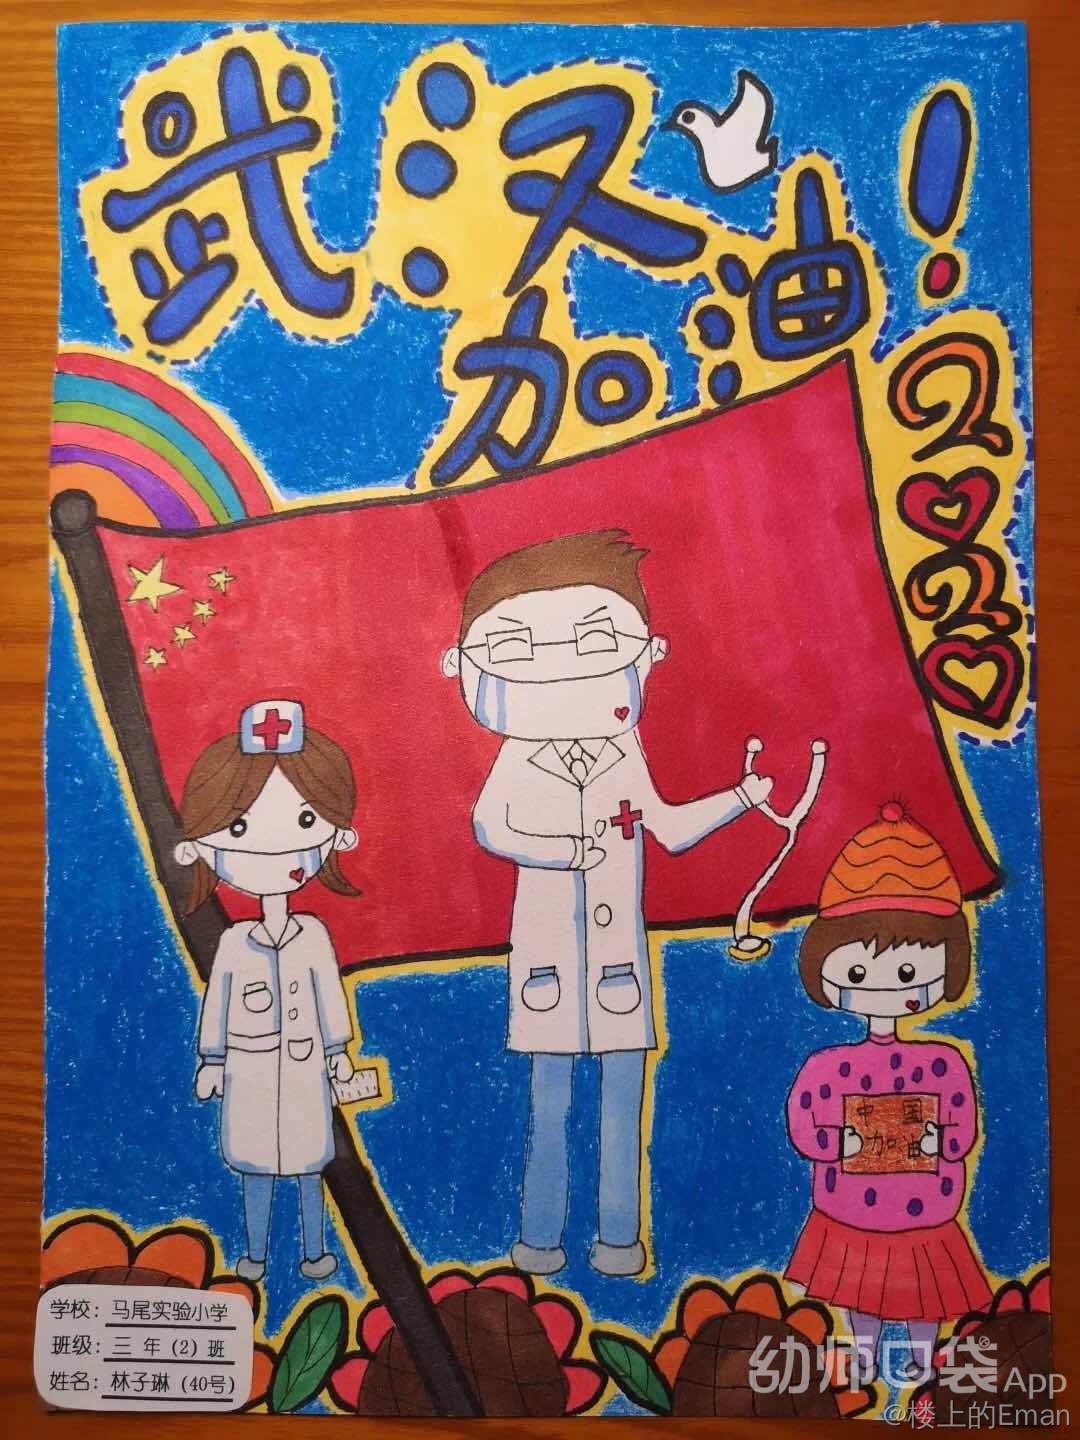 武汉
加油！
2020
中国
加油
学校：马尾实验小学
班级：三年（2）班
姓名：林子琳（40号）
幼师口袋App
@楼上的Eman